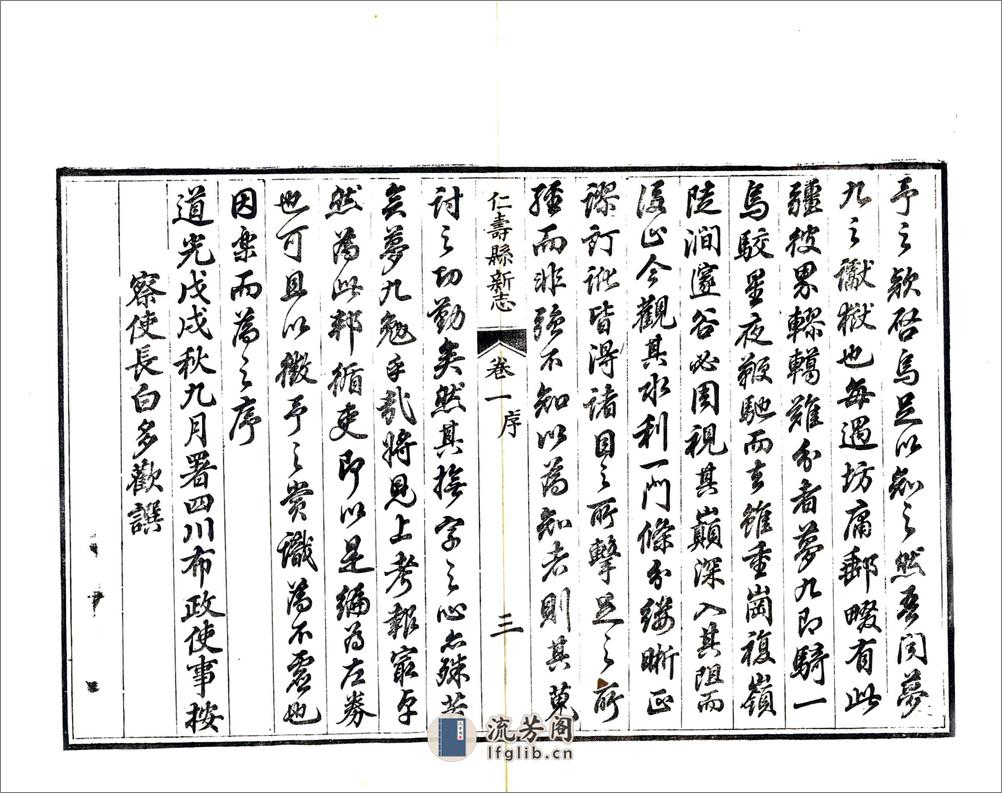 予之欵啓烏足以知之然吾聞夢
九之讞獄也每遇坊庸郵畷有此
疆彼界轇轕難分者夢九即騎一
馬駮星夜鞭馳而去雖重崗複嶺
陡澗邃谷必周視其巔深入其阻而
後止今觀其水利一門條分縷晰正
謬訂訛皆得諸目之所擊足之所
經而非強不知以為知者則其蒐
仁壽縣新志
卷一
序
三
討之功勤矣然其撫字之心亦殊苦
矣夢九勉乎哉將見上考報最卓
然為此邦循吏即以是編為左券
也可且以徵予之賞識為不虛也
因樂而為之序
道光戊戌秋九月署四川布政使事按
察使長白多歡譔
流芳阁
lfglib.cn